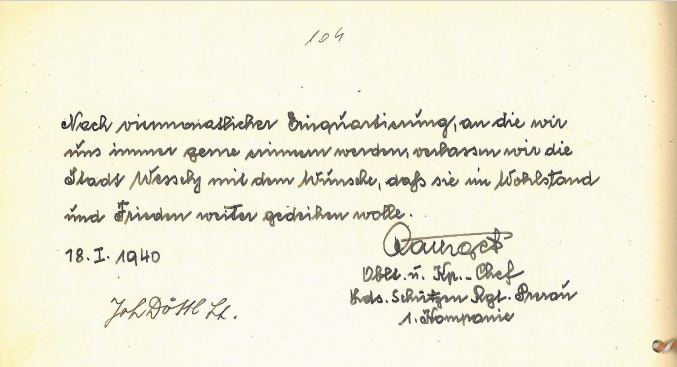 104
Nach viermonatlicher Einquartierung, an die wir
uns immer gerne erinnern werden, verlassen wir die
Stadt Wessely mit dem Wunsche, daß sie im Wohlstand
und Frieden weiter gedeihen wolle.
18. I. 1940
Oblt. u. Kp.-Chef
Lds. Schützen Rgt. Prerau
1. Kompanie
Joh Döttl Lt.